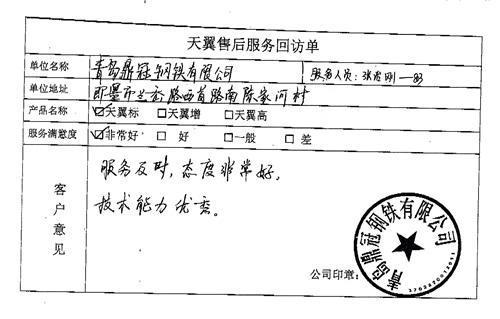 天翼售后服务回访单
单位名称 青岛鼎冠钢铁有限公司 服务人员:张君刚
单位地址 即墨市兰岙路西首路南陈家河村
产品名称 ☑天翼标 □天翼增 □天翼高
服务满意度 ☑非常好 □ 好 □一般 □ 差
客户意见
服务及时,态度非常好,
技术能力优秀。
公司印章:
青岛鼎冠钢铁有限公司